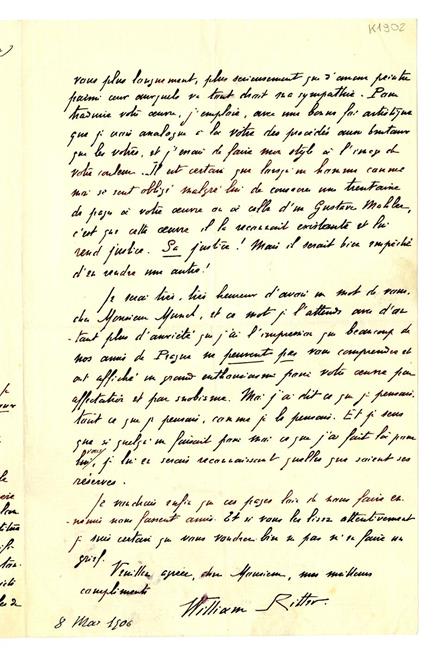 K1902
vous plus longuement, plus sérieusement que d'aucun peintre
parmi ceux auxquels va tout droit ma sympathie. Pour
traduire votre œuvre, j'emploie, avec une bonne foi artistique
que je crois analogue à la vôtre des procédés aussi brutaux
que les vôtres, et j'essaie de faire mon style à l'image de
votre couleur. Il est certain que lorsqu'un homme comme
moi se sent obligé malgré lui de consacrer une trentaine
de pages à votre œuvre ou à celle d'un Gustave Mahler,
c'est que cette œuvre il la reconnaît existante et lui
rend justice. Sa justice! Mais il serait bien empêché
d'en rendre une autre!
Je serai très, très heureux d'avoir un mot de vous,
cher Monsieur Munch, et ce mot je l'attends avec d'au-
-tant plus d'anxiété que j'ai l'impression que beaucoup de
nos amis de Prague ne peuvent pas vous comprendre et
ont affiché un grand enthousiasme pour votre œuvre par
affectation et par snobisme. Moi j'ai dit ce que je pensais,
tout ce que je pensais, comme je le pensais. Et je sens
que si quelqu'un faisait pour moi ce que j'ai fait là pour
vous, je lui en serais reconnaissant quelles que soient ses
réserves.
Je voudrais enfin que ces pages loin de nous faire en-
-nemis nous fassent amis. Et si vous les lisez attentivement
je suis certain que vous voudrez bien ne pas m'en faire un
grief.
Veuillez agréer, cher Monsieur, mes meilleurs
compliments
William Ritter.
8 Mar 1906